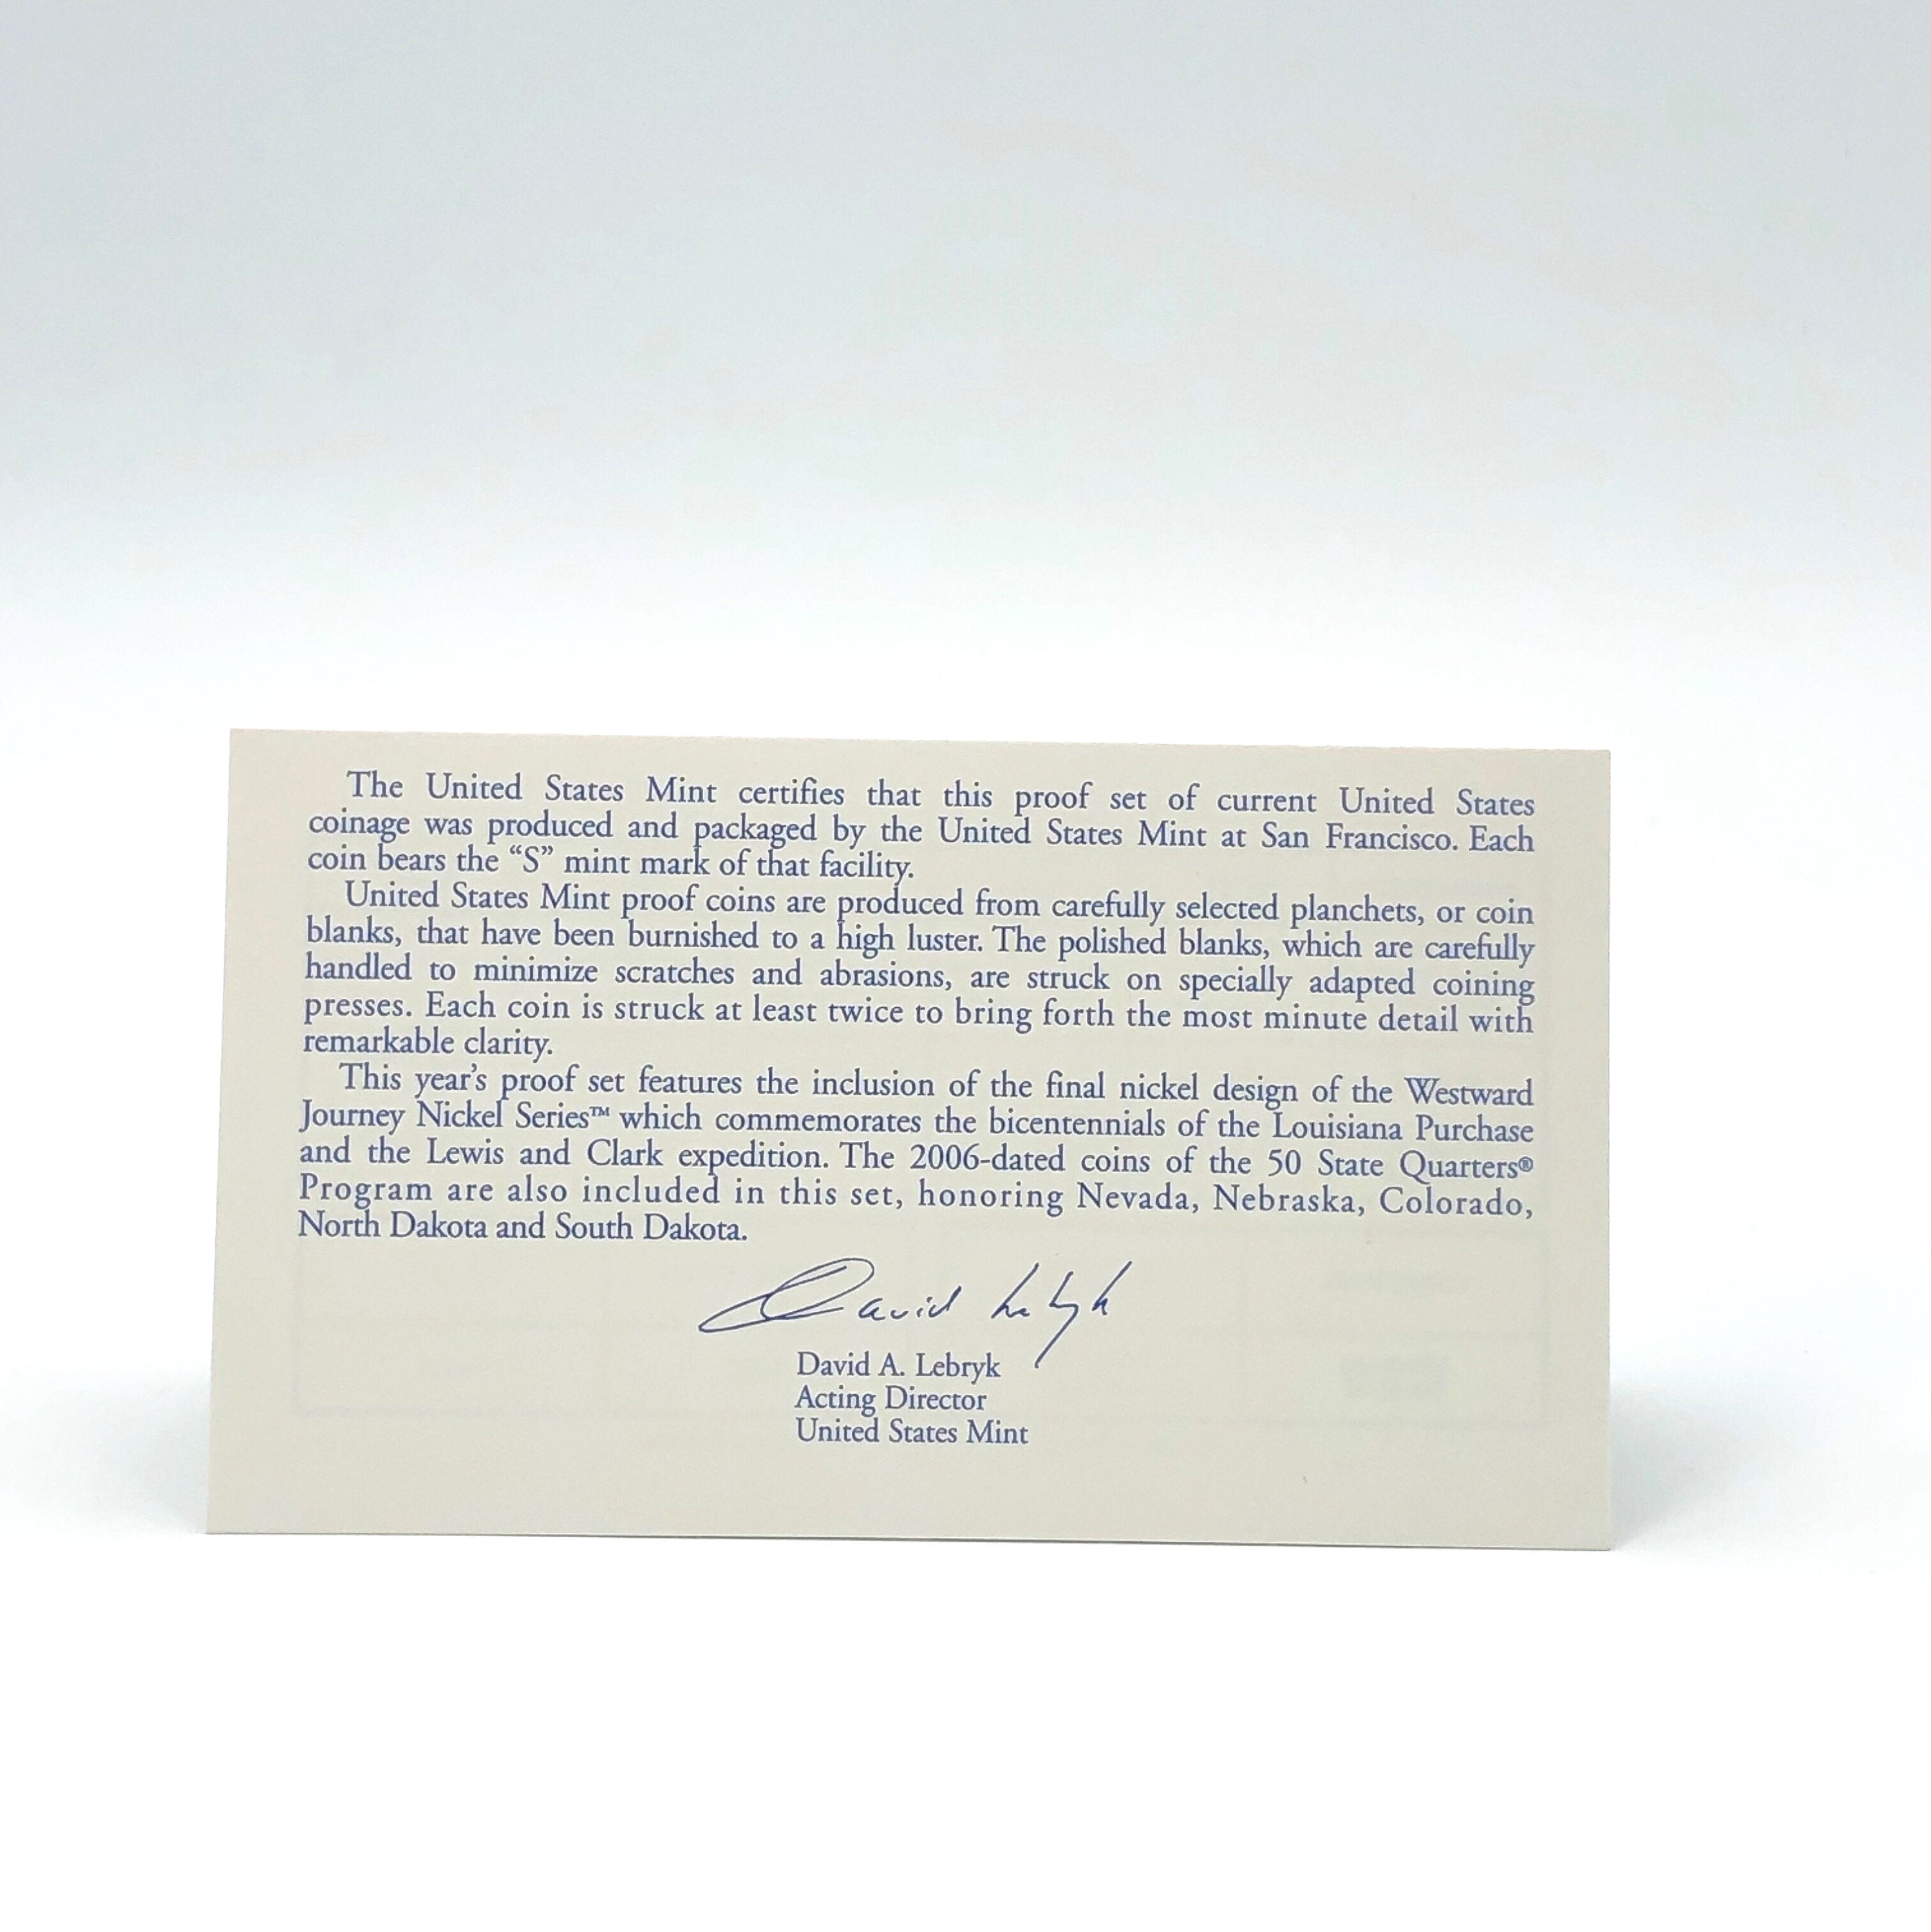 The United States Mint certifies that this proof set of current United States
coinage was produced and packaged by the United States Mint at San Francisco. Each
coin bears the “S” mint mark of that facility.
United States Mint proof coins are produced from carefully selected planchets, or coin
blanks, that have been burnished to a high luster. The polished blanks, which are carefully
handled to minimize scratches and abrasions, are struck on specially adapted coining
presses. Each coin is struck at least twice to bring forth the most minute detail with
remarkable clarity.
This year’s proof set features the inclusion of the final nickel design of the Westward
Journey Nickel Series™ which commemorates the bicentennials of the Louisiana Purchase
and the Lewis and Clark expedition. The 2006-dated coins of the 50 State Quarters®
Program are also included in this set, honoring Nevada, Nebraska, Colorado,
North Dakota and South Dakota.
David Lebryk
David A. Lebryk
Acting Director
United States Mint